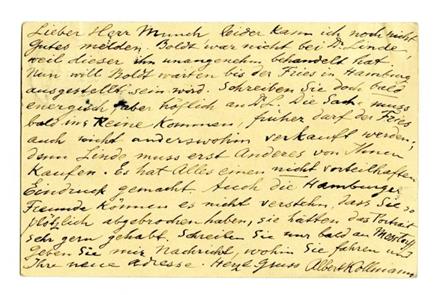 Lieber Herr Munch leider kann ich noch nicht
Gutes melden. Boldt war nicht bei D. Linde,
weil dieser ihn unangenehm behandelt hat
Nun will Boldt warten bis der Fries in Hamburg
ausgestellt sein wird. Schreiben Sie doch bald
energisch aber höflich an D. L. Die Sach. muss
bald ins Reine kommen, früher darf der Fries
auch nicht anderswohin verkauft werden,
denn Linde muss erst Anderes von Ihnen
kaufen. Es hat Alles einen nicht vorteilhaften
Eindruck gemacht Auch die Hamburger
Freunde können es nicht verstehn, dass Sie so
plötzlich abgebrochen haben, sie hätten das Portrait
sehr gern gehabt. Schreiben Sie nur bald an
Geben Sie mir Nachricht, wohin Sie fahren und
Ihre neue Adresse Herzl. Gruss Albert Kollmann